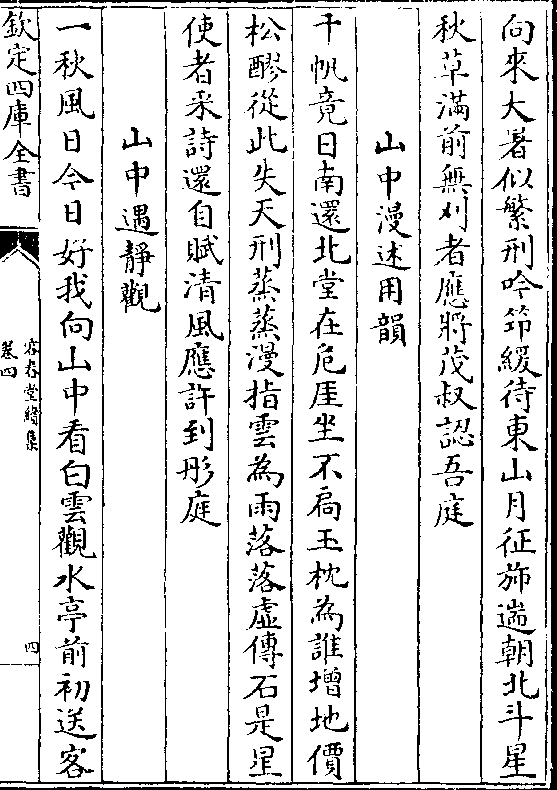 向來大暑似繁刑吟笻緩待東山月征旆遄朝北斗星
秋草滿前無刈者應將茂叔認吾庭
山中漫述用韻
千帆竟日南還北堂在危厓坐不扄玉枕為誰增地價
松醪從此失天刑蒸蒸漫指雲為雨落落虚傳石是星
使者采詩還自賦清風應許到彤庭
山中遇靜觀
一秋風日今日好我向山中看白雲觀水亭前初送客
欽定四庫全書
容春堂續集
卷四
四